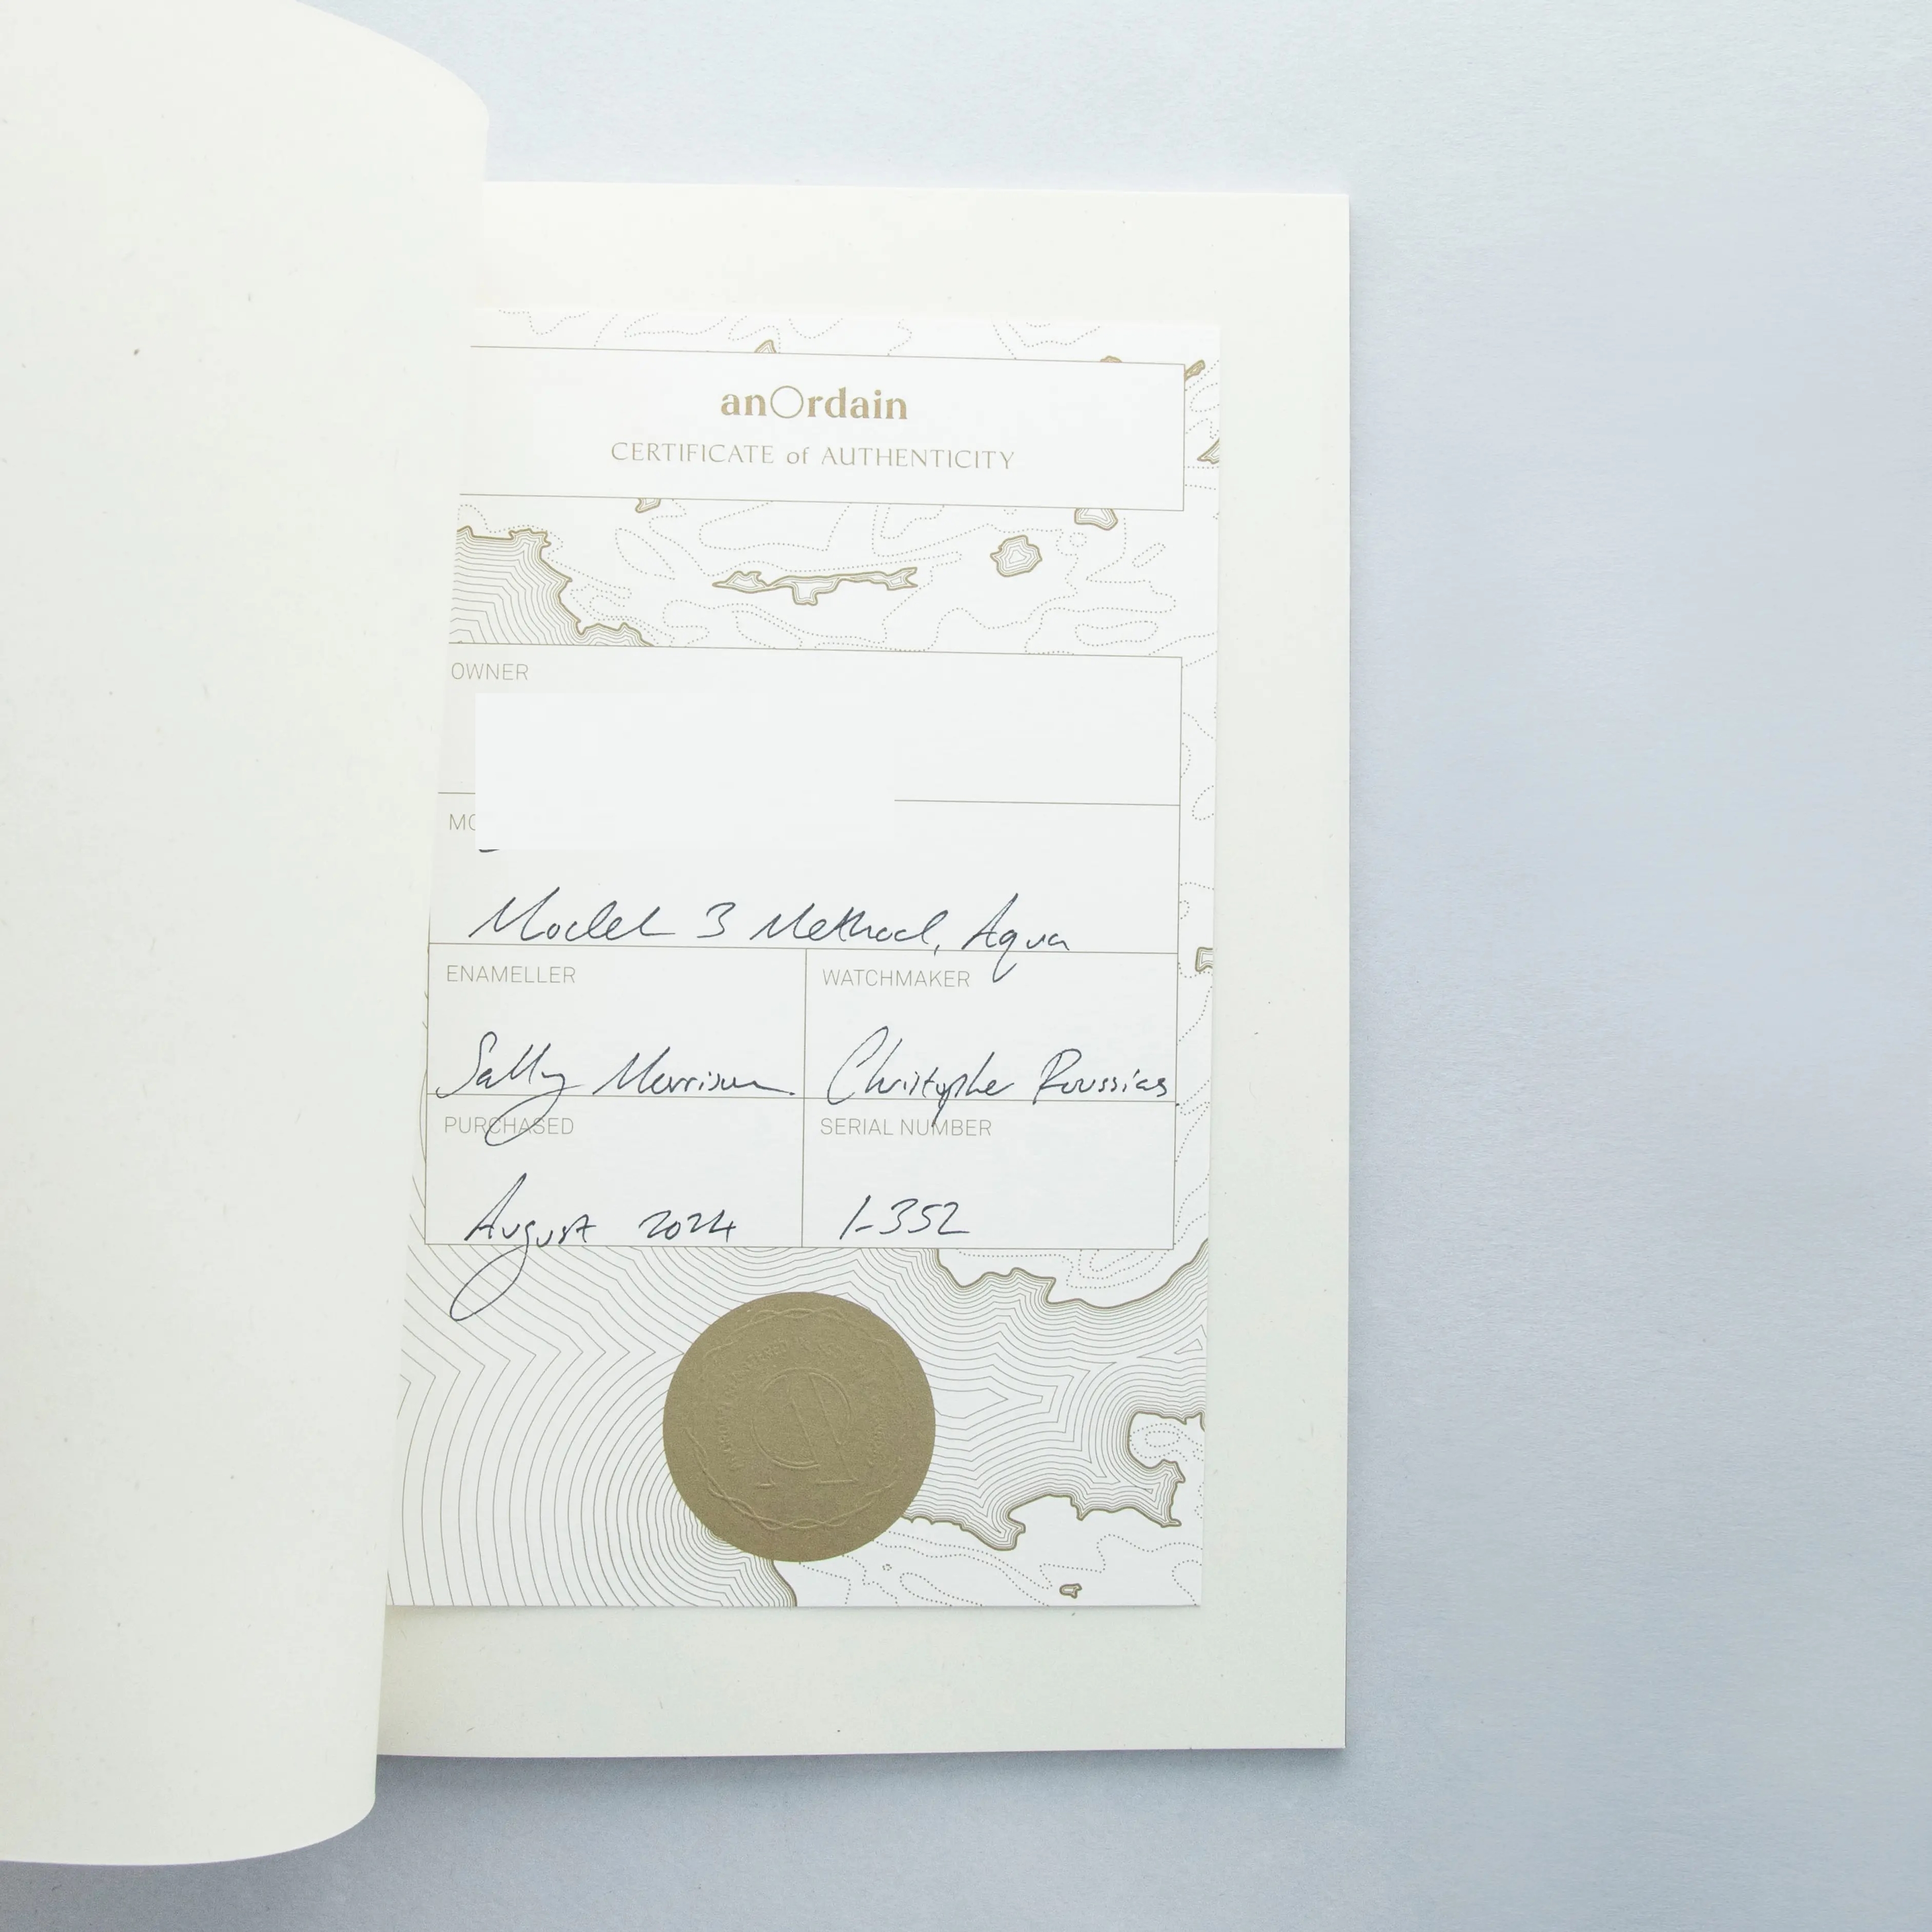 anOrdain
CERTIFICATE of AUTHENTICITY
OWNER
Model 3 Method, Aqua
ENAMELLER
WATCHMAKER
Sally Morrison
Christophe Roussias
PURCHASED
SERIAL NUMBER
August 2024
1-352